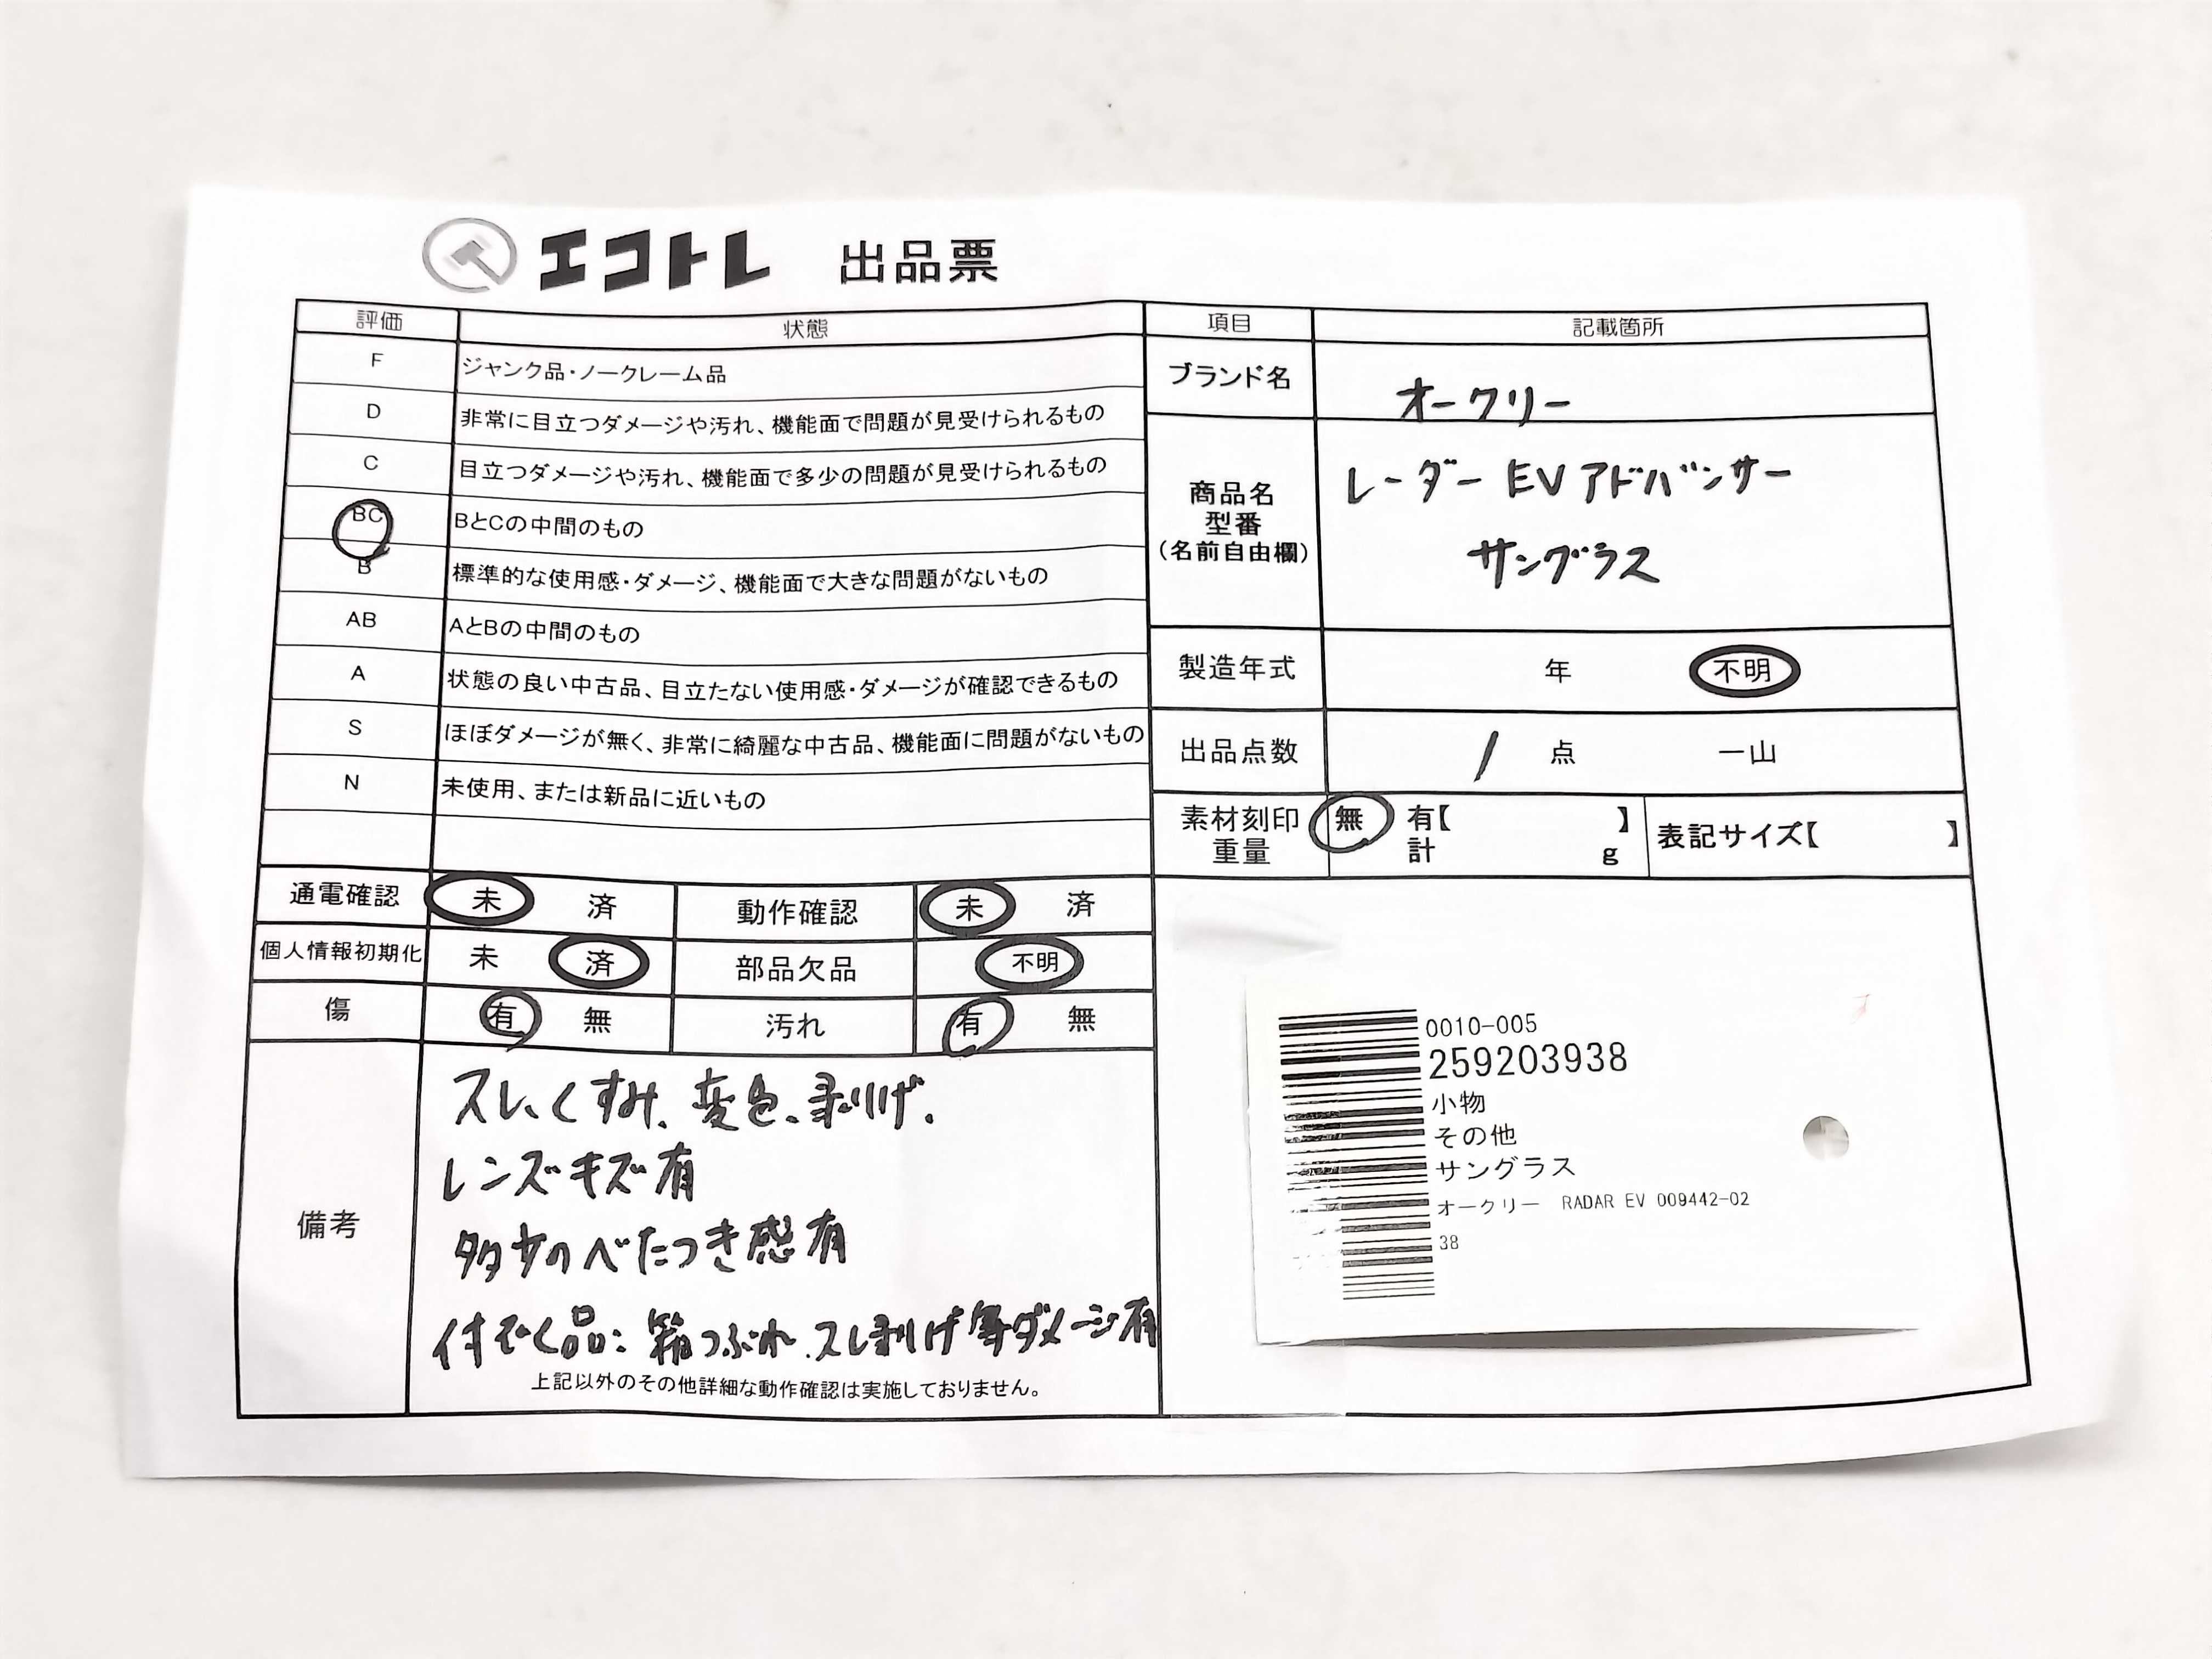 エコトレ 出品票
評価 状態
F ジャンク品・ノークレーム品
D 非常に目立つダメージや汚れ、機能面で問題が見受けられるもの
C 目立つダメージや汚れ、機能面で多少の問題が見受けられるもの
BC BとCの中間のもの
B 標準的な使用感・ダメージ、機能面で大きな問題がないもの
AB AとBの中間のもの
A 状態の良い中古品、目立たない使用感・ダメージが確認できるもの
S ほぼダメージが無く、非常に綺麗な中古品、機能面に問題がないもの
N 未使用、または新品に近いもの
通電確認 未 済 動作確認 未 済
個人情報初期化 未 済 部品欠品 不明
傷 有 無 汚れ 有 無
備考
スレ、くすみ、変色、剥げ、
レンズキズ有
多少のべたつき感有
付ぞく品：箱つぶれ、スレ剥げ等ダメージ有
上記以外のその他詳細な動作確認は実施しておりません。
項目 記載箇所
ブランド名 オークリー
商品名
型番
（名前自由欄）
レーダー EV アドバンサー
サングラス
製造年式 年 不明
出品点数 1 点 一山
素材刻印 無 有【 】
重量 計 g
表記サイズ【 】
0010-005
259203938
小物
その他
サングラス
オークリー RADAR EV 009442-02
38